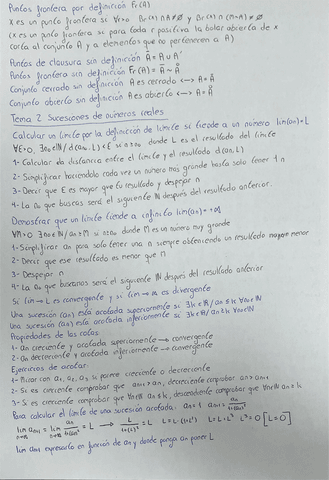 Puntos frontera por definición Fr(A)
X es un punto frontera si ∀r>0 Br(x) ∩ A ≠ ∅ y Br(x) ∩ (M-A) ≠ ∅
(x es un punto frontera si para toda r positiva la bolar abierta de x
corta al conjunto A y a elementos que no pertenecen a A)
Puntos de clausura sin definición Ā = A ∪ A'
Puntos frontera sin definición Fr(A) = Ā - Å
Conjunto cerrado sin definición A es cerrado <-> A = Ā
Conjunto abierto sin definición A es abierto <-> A = Å
Tema 2 Sucesiones de números reales
Calcular un límite por la definición de límite si tiende a un número lim(an)=L
∀E>0, ∃n₀∈ℕ / d(an, L) < E si n≥n₀ donde L es el resultado del límite
1- Calcular la distancia entre el límite y el resultado d(an, L)
2- Simplificar haciendolo cada vez un número mas grande hasta solo tener 1 n
3- Decir que E es mayor que tu resultado y despejar n
4- La n₀ que buscas será el siguiente ℕ después del resultado anterior.
Demostrar que un límite tiende a infinito lim(an) = +∞
∀M>0 ∃n₀∈ℕ / an≥M si n≥n₀ donde M es un número muy grande
1- Simplificar an para solo tener una n siempre obteniendo un resultado menor
2- Decir que ese resultado es menor que M
3- Despejar n
4- La n₀ que buscamos será el siguiente ℕ después del resultado anterior
Si lim → L es convergente y si lim → ∞ es divergente
Una sucesión (an) está acotada superiormente si ∃k∈ℝ / an≤k ∀n∈ℕ
Una sucesión (an) está acotada inferiormente si ∃k∈ℝ / an≥k ∀n∈ℕ
Propiedades de las cotas:
1- an creciente y acotada superiormente → convergente
2- an decreciente y acotada inferiormente → convergente
Ejercicios de acotar:
1- Mirar con a₁, a₂, a₃ si parece creciente o decreciente
2- Si es creciente comprobar que an+1 > an, decreciente comprobar an > an+1
3- Si es creciente comprobar que ∀n∈ℕ an≤k, descendente comprobar que ∀n∈ℕ an≥k
Para calcular el límite de una sucesión acotada: a₁=1 an+1 = an/1+(an)²
lim an+1 = lim an/1+(an)² = L → L/1+(L)² = L L = L(1+L²) L = L+L³ L³=0 [L=0]
lim an+1 expresarlo en función de an y donde ponga an poner L